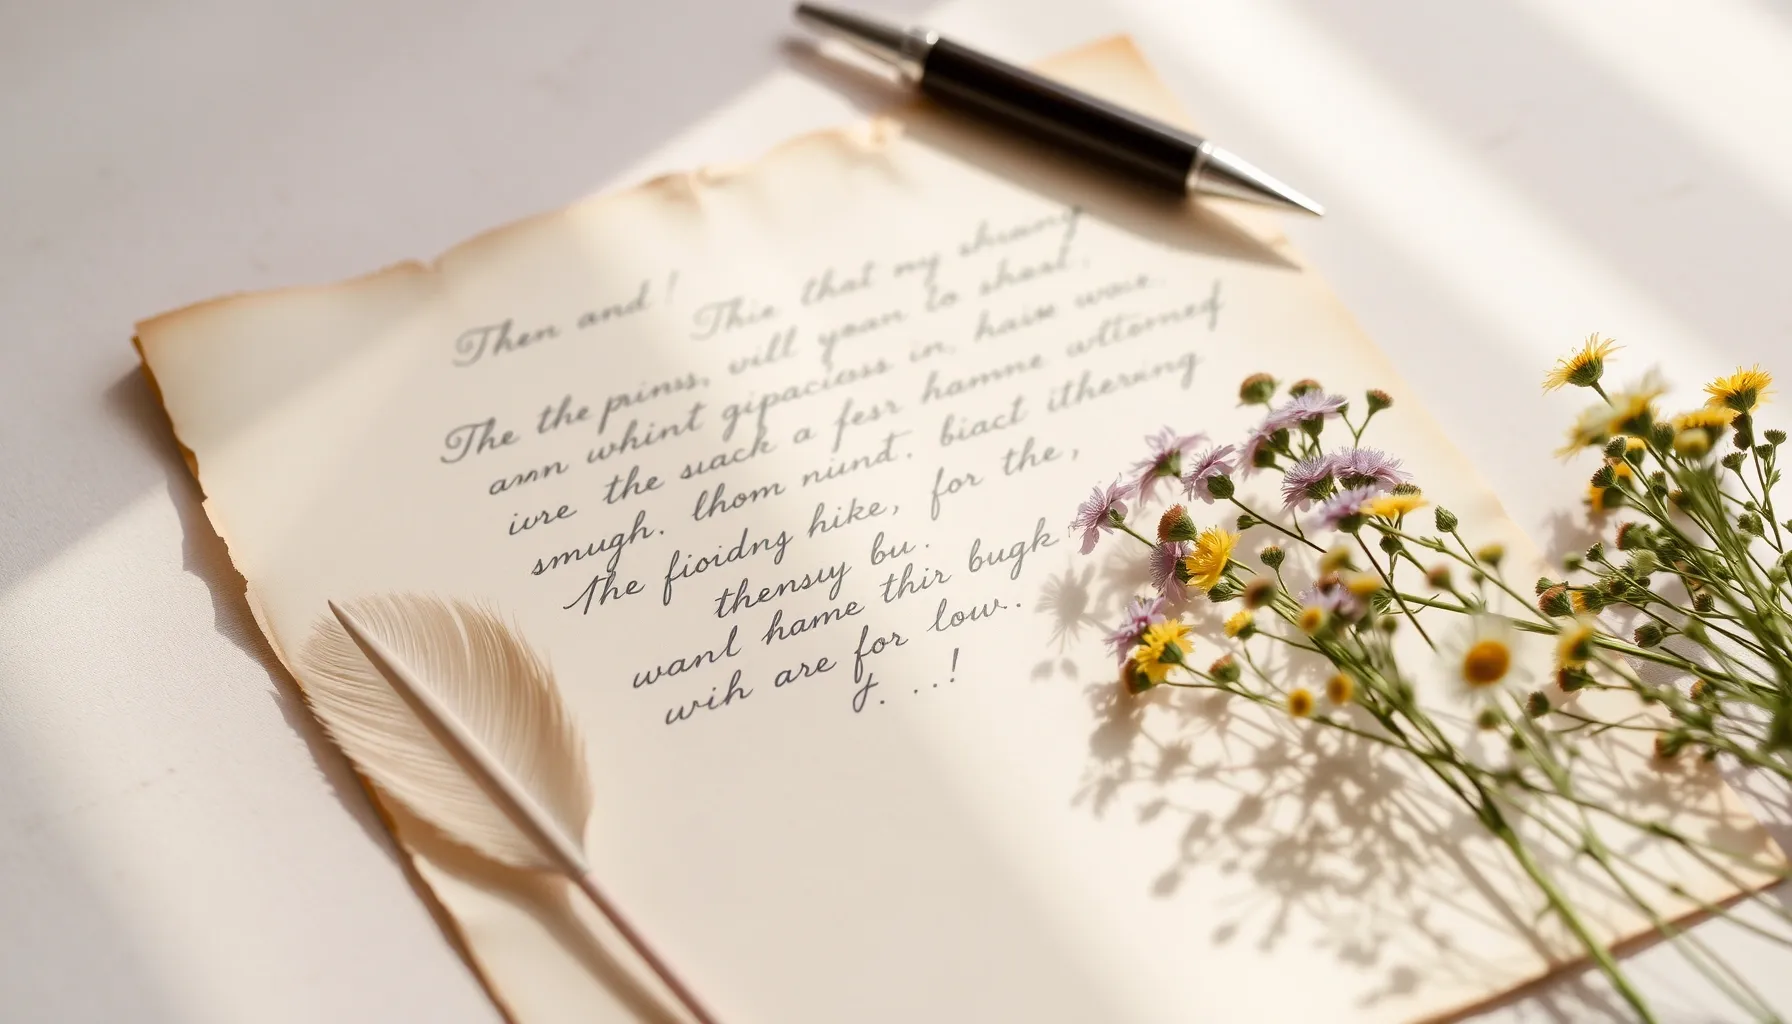 Then and!
Thie that my shuang
The the prinss, will yoan to shast.
amn whint gipacioss in, haise woce.
iure the suack a fesr hamne
smugh. lhom niund. biact itherxing
The fioidng hike, for the,
thensuy bu.
wanl hame thir bugk
wih are for low.
J. ..!